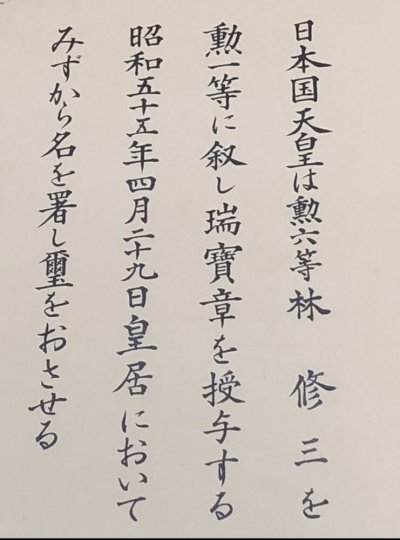 日本国天皇は勲六等林　修三を
勲一等に叙し瑞寶章を授与する
昭和五十五年四月二十九日皇居において
みずから名を署し璽をおさせる